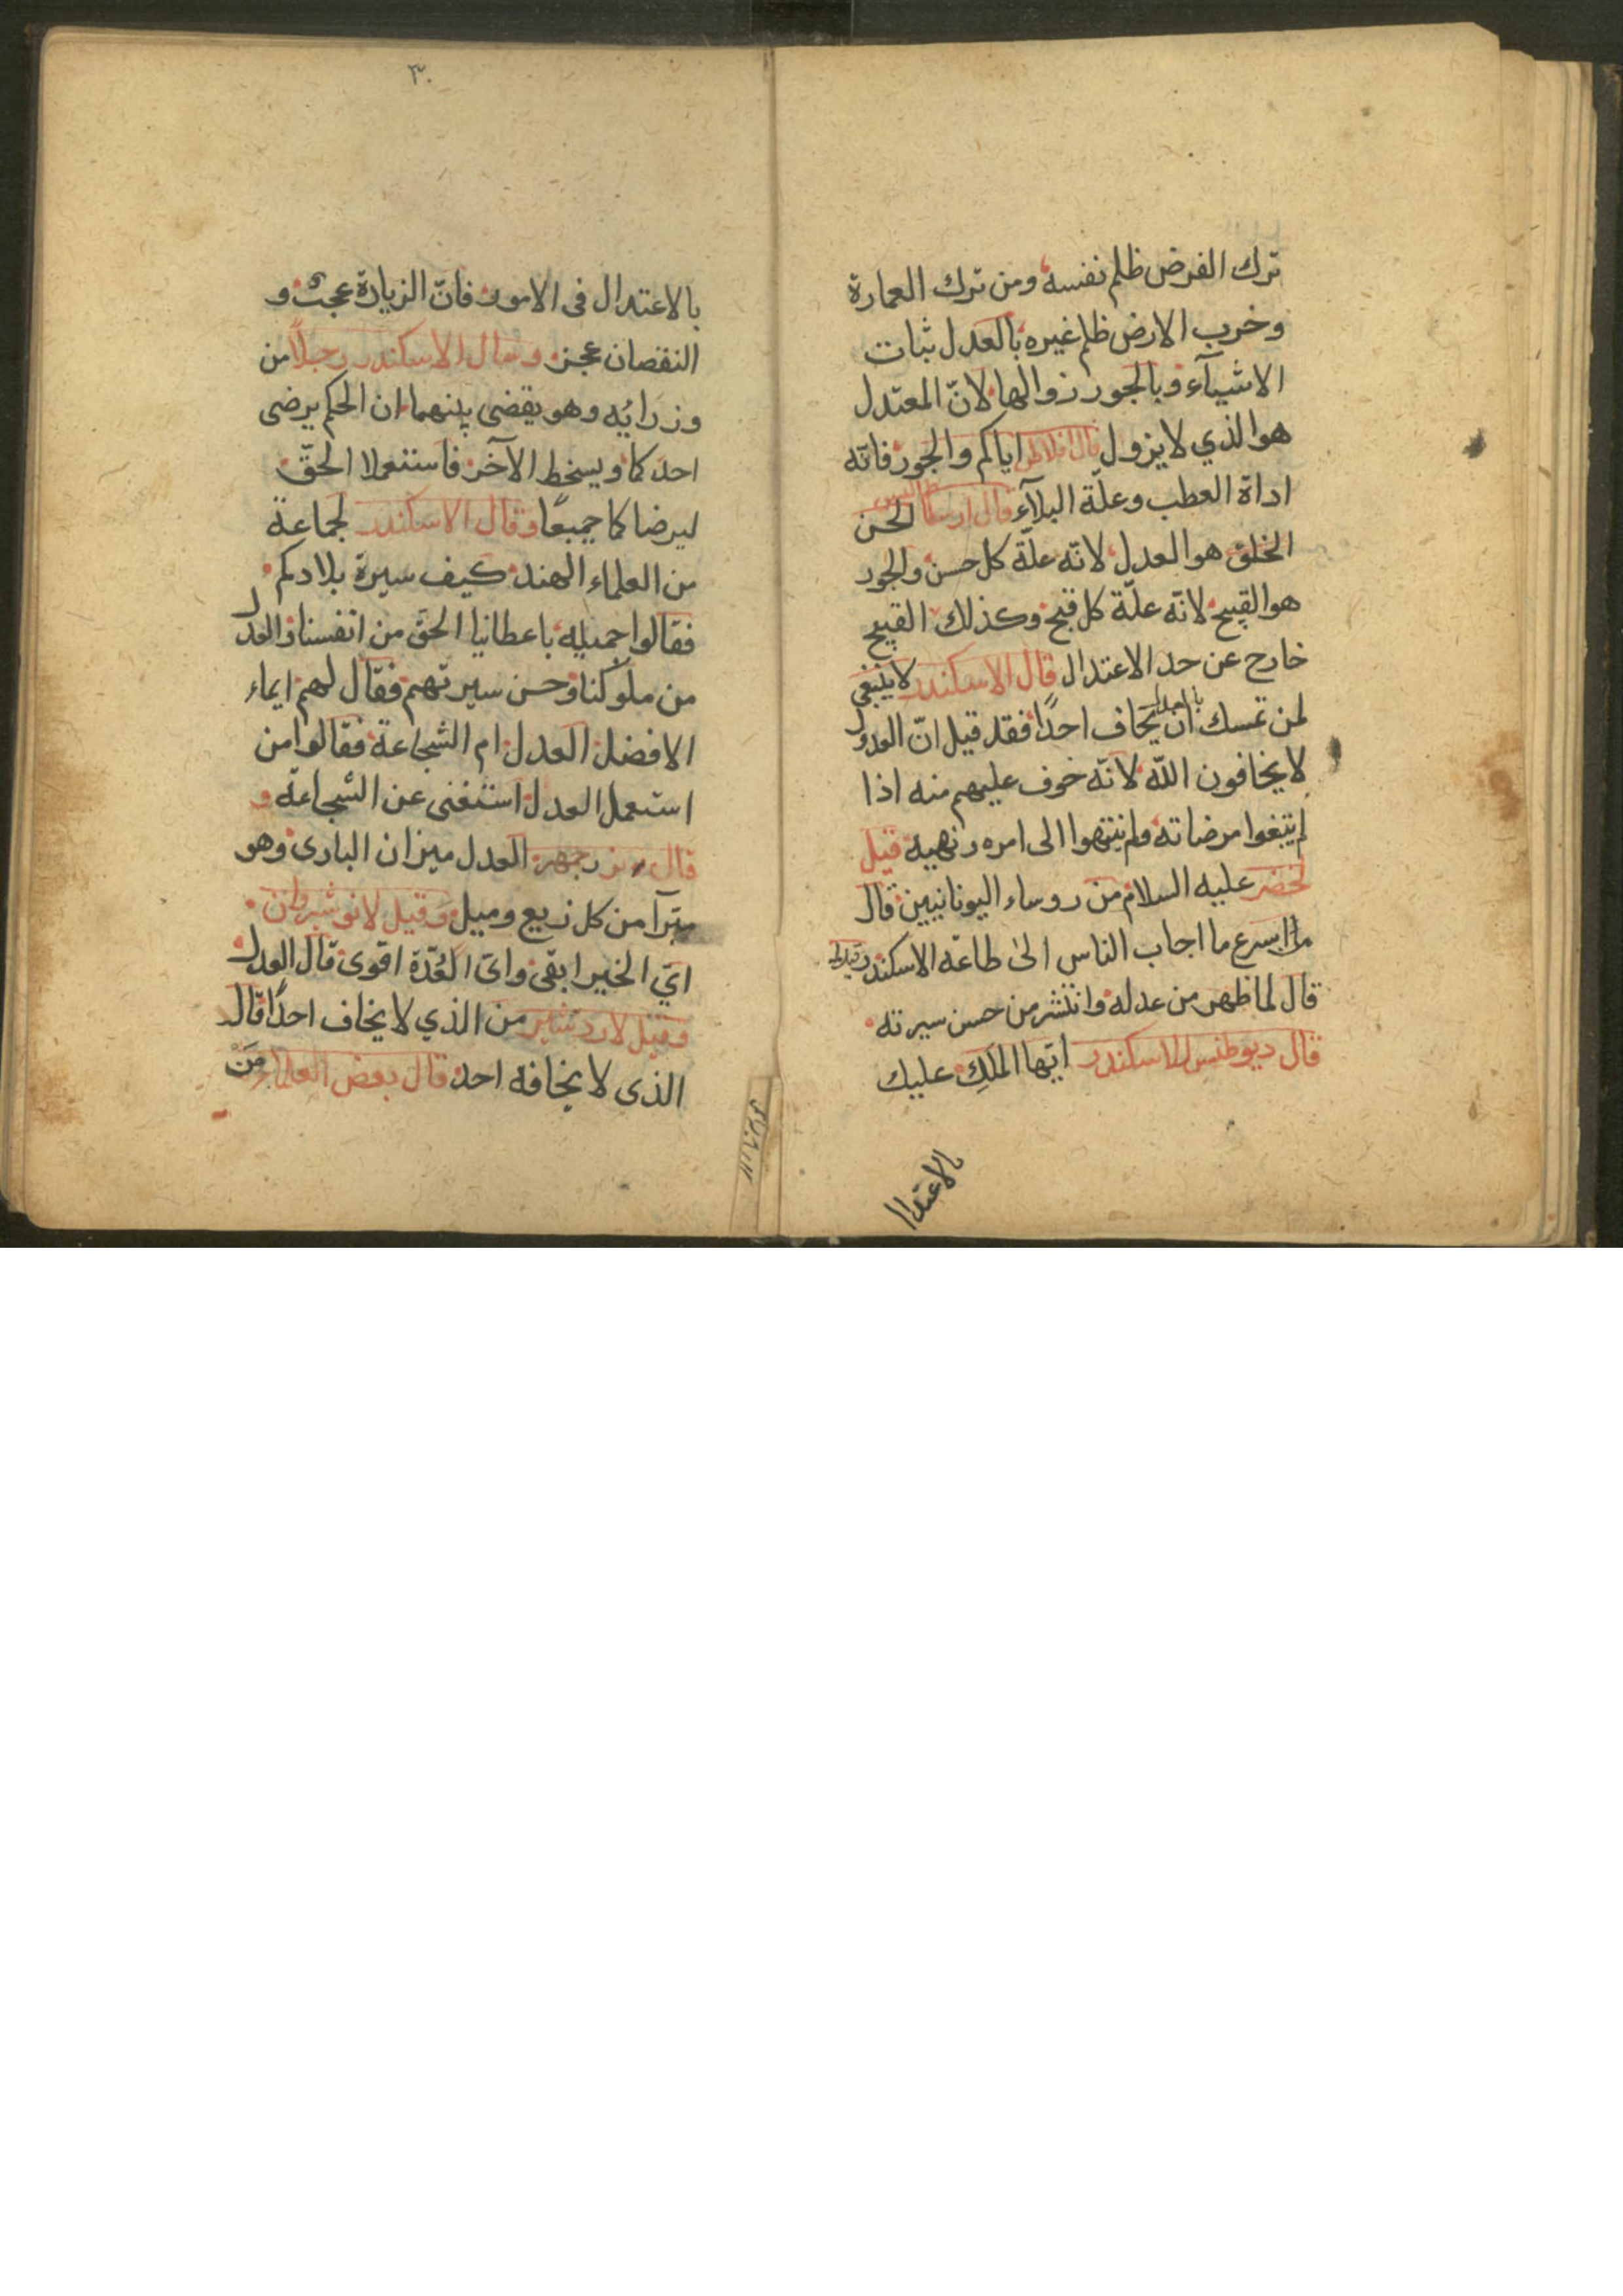 ترك الفرض ظلم نفسه ومن ترك العمارة
وخرب الارض ظلم غيره بالعدل ثبات
الاشيآء وبالجور زوالها لانّ المعتدل
هو الذي لا يزول قال افلاطن اياكم والجور فانّه
اداة العطب وعلّة البلآء قال ارسطاطاليس لحسن
الخلق هو العدل لانّه علّة كل حسن والجور
هو القبيح لانّه علّة كل قبح وكذلك القبيح
خارج عن حد الاعتدال قال الاسكندر لا ينبغي
لمن تمسك بالعدل ان يخاف احدًا فقد قيل انّ العدول
لا يخافون اللّه لانّه خوف عليهم منه اذا
اتبغوا مرضاته وانتهوا الى امره ونهيه قيل
لخضر عليه السلام من روساء اليونانيين قال
ما اسرع ما اجاب الناس الى طاعة الاسكندر
قال لما ظهر من عدله وانتشر من حسن سيرته
قال ديوطنس للاسكندر ايّها الملك عليك
بالاعتدال
٣٠
بالاعتدال فى الامور فانّ الزيادة عجب و
النقصان عجز وسال الاسكندر رجلاً من
وزرايُه وهو يقضى بينهما ان الحكم يرضى
احدكما ويسخط الآخر فاستعملا الحقّ
ليرضاكما جميعًا وقال الاسكندر لجماعة
من العلماء الهند كيف سيرة بلادكم
فقالوا جميله باعطانيا الحق من انفسنا والعدل
من ملوكنا وحسن سيرتهم فقال لهم ايماء
الافضل العدل ام الشجاعة فقالوا من
استعمل العدل استغنى عن الشجاعة و
قال بزرجمهر العدل ميزان البارى وهو
مبرّآ من كل زيع وميل وقيل لانوشيروان
ايّ الخير ابقى واىّ العُدّة اقوى قال العدل
وقيل لاردشير من الذي لا يخاف احدًا قال
الذى لا يخافه احد قال بعض العلماء مَنْ